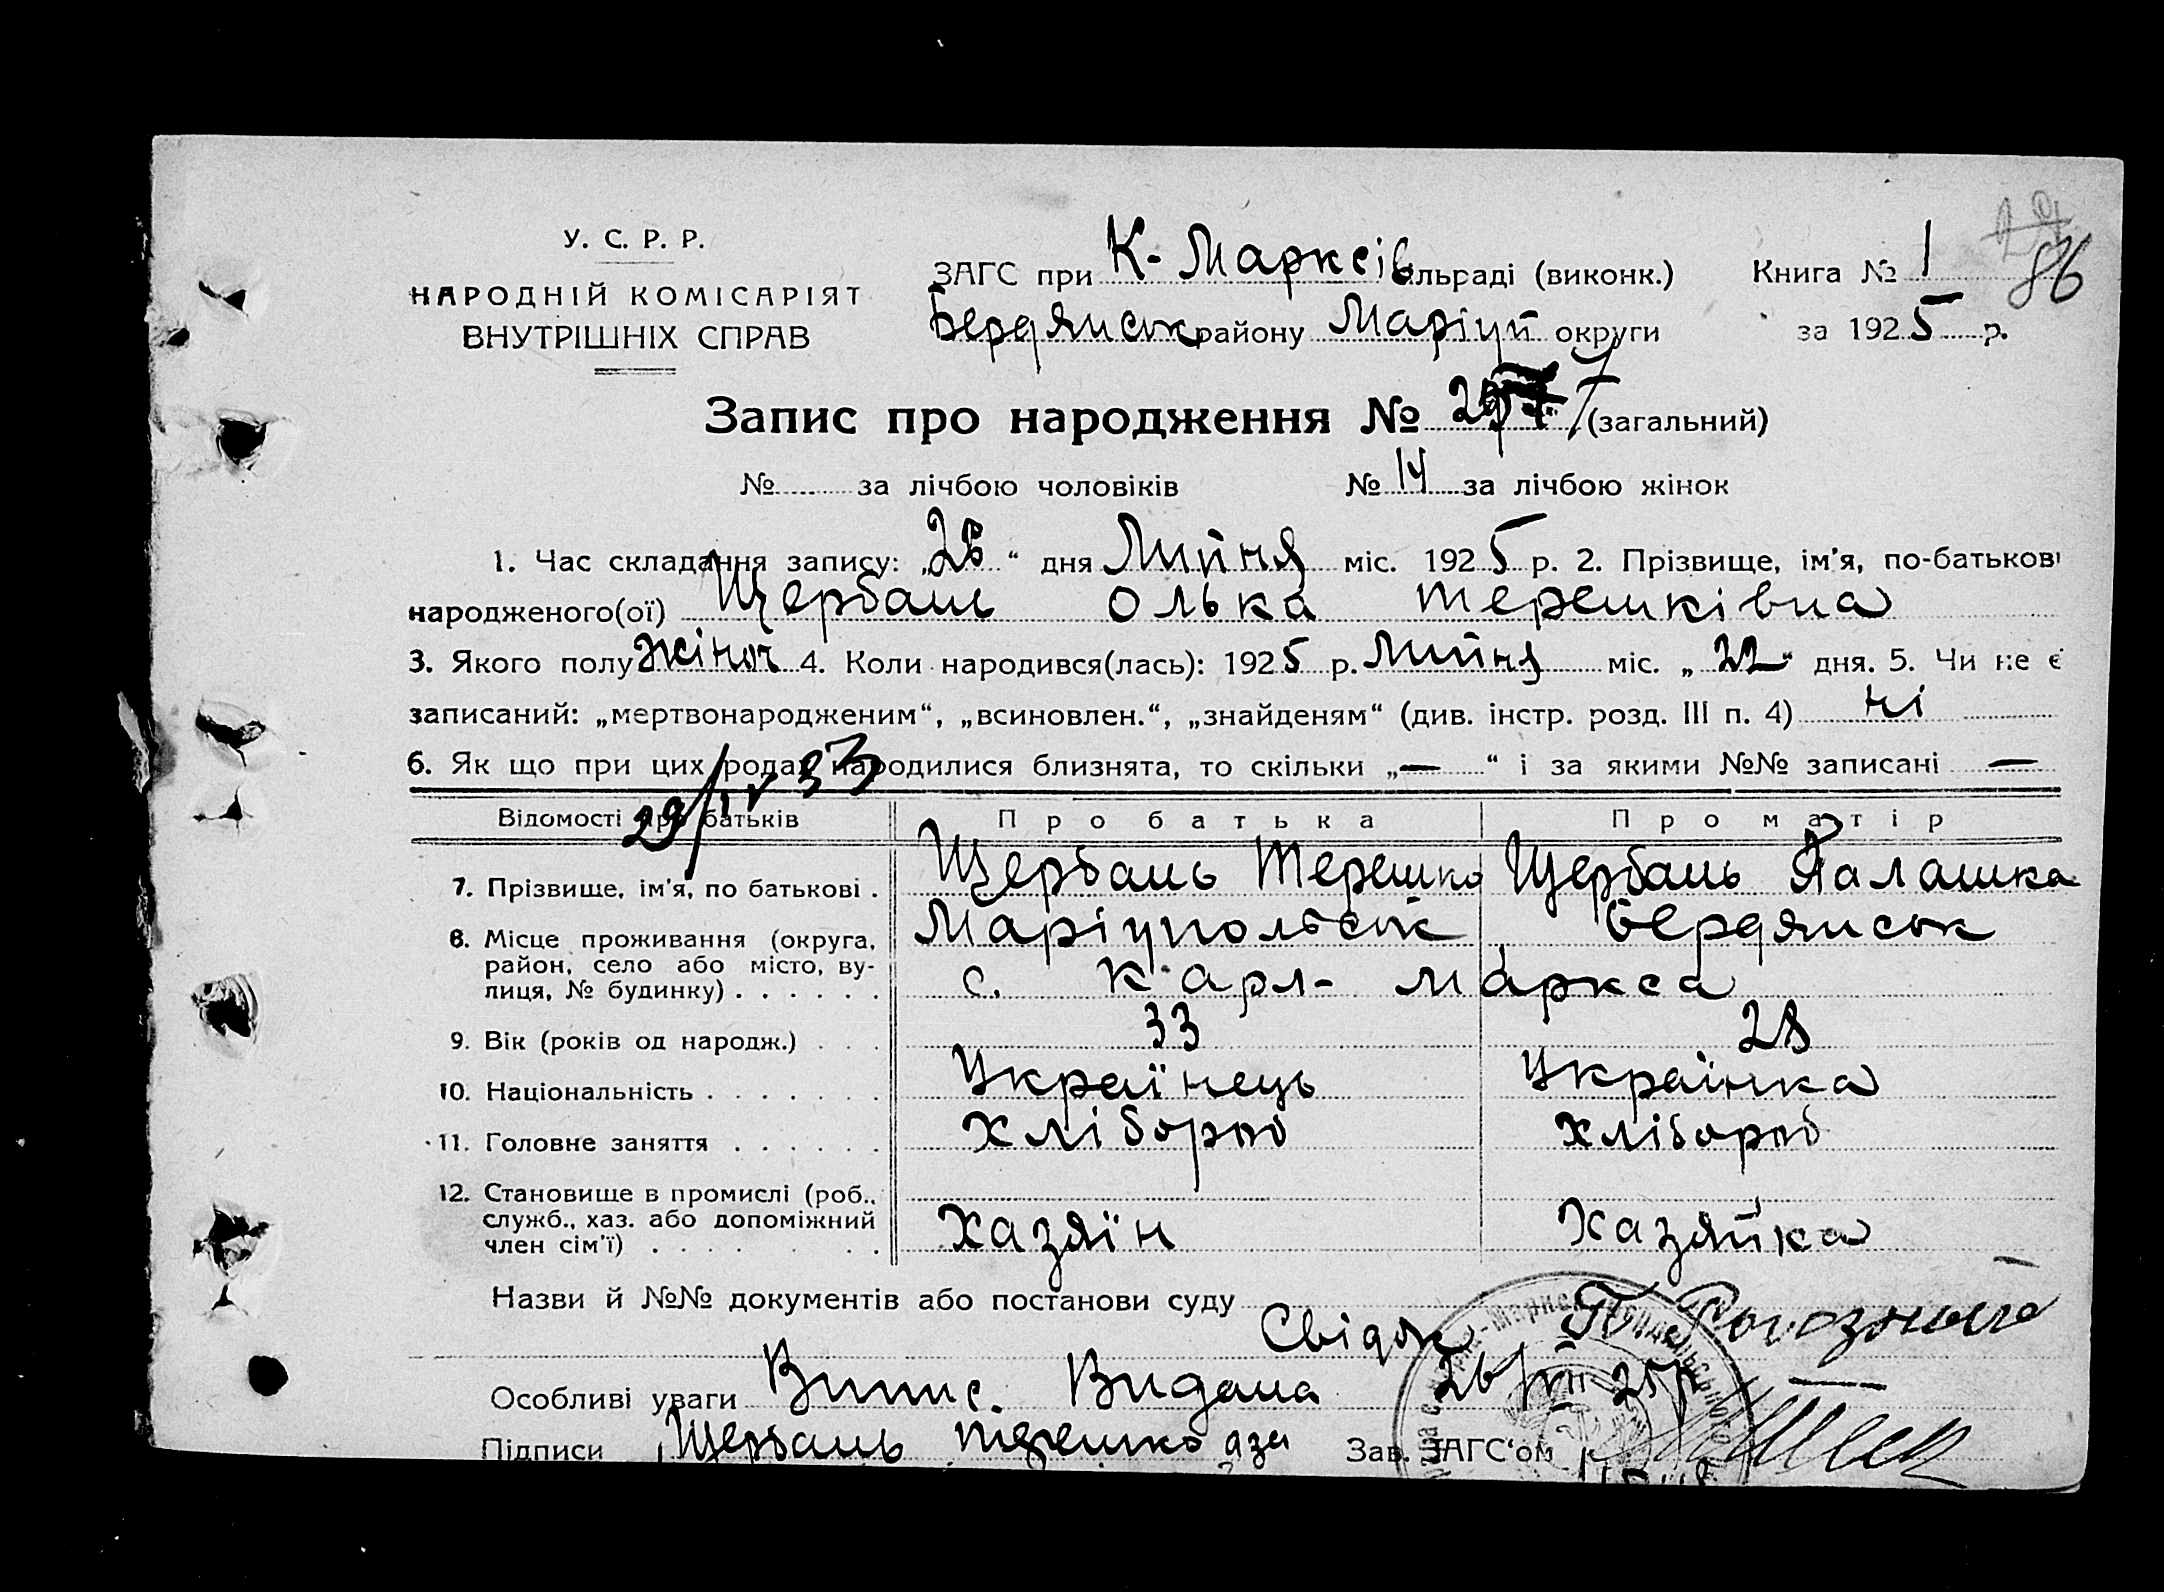 86
У. С. Р. Р.
НАРОДНІЙ КОМІСАРІЯТ
ВНУТРІШНІХ СПРАВ
ЗАГС при К-Марксів сільраді (виконк.) Книга № 1
Бердянськ району Маріуп округи за 1925 р.
Запис про народження № (загальний)
№ за лічбою чоловіків № 14 за лічбою жінок
1. Час складання запису: „26“ дня Липня міс. 1925 р. 2. Прізвище, ім'я, по-батькові
народженого(ої) Щербань Олька Терешківна
3. Якого полу жіноч 4. Коли народився(лась): 1925 р. Липня міс. „22“ дня. 5. Чи не є
записаний: „мертвонародженим“, „всиновлен.“, „знайденям“ (див. інстр. розд. III п. 4) ні
6. Як що при цих родах народилися близнята, то скільки „—“ і за якими №№ записані —
29/IV 33
Відомості про батьків Про батька Про матір
7. Прізвище, ім'я, по батькові . Щербань Терешко Щербань Палашка
8. Місце проживання (округа, район, село або місто, вулиця, № будинку) . . . . . . Маріупольськ Бердянськ
с. Карл-Маркса
9. Вік (років од народж.) . . . 33 28
10. Національність . . . . . . . Українець Українка
11. Головне заняття . . . . . . Хлібороб Хлібороб
12. Становище в промислі (роб., служб., хаз. або допоміжний член сім'ї) . . . . . . . . Хазяїн Хазяйка
Назви й №№ документів або постанови суду
Свідок
Особливі уваги Випис Видана 26/VII 25р
Підписи Щербань Терешко Зав. ЗАГС'ом